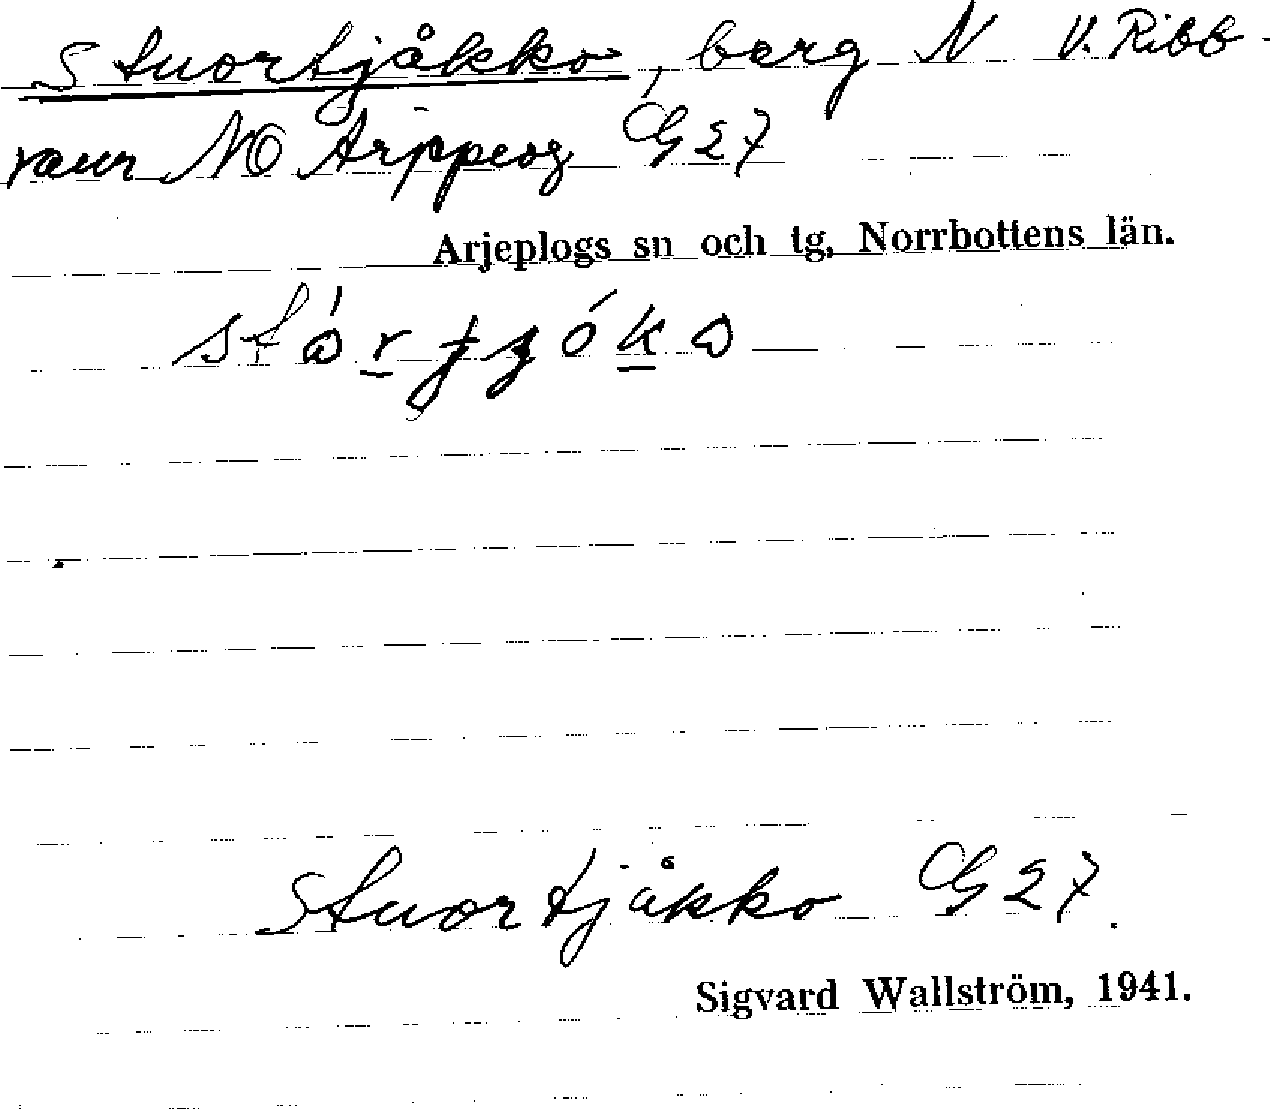 Stuortjåkko, berg N V. Ribb-
raur NO Arppeog G27
Arjeplogs sn och tg, Norrbottens län.
Stuortjåkko G27.
Sigvard Wallström, 1941.